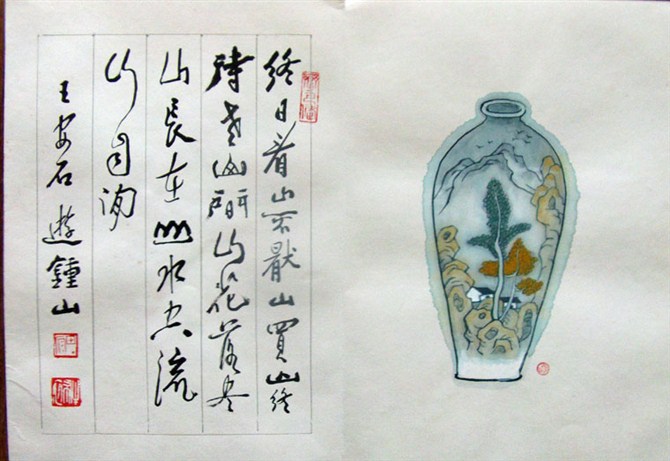 終日看山不厭山買山終
待老山間山花落尽
山長在山水空流
山自闲
王安石遊鍾山